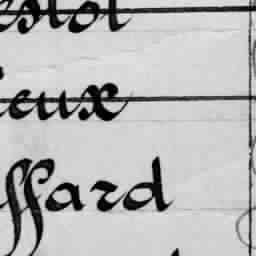 estol
ieux
ffard